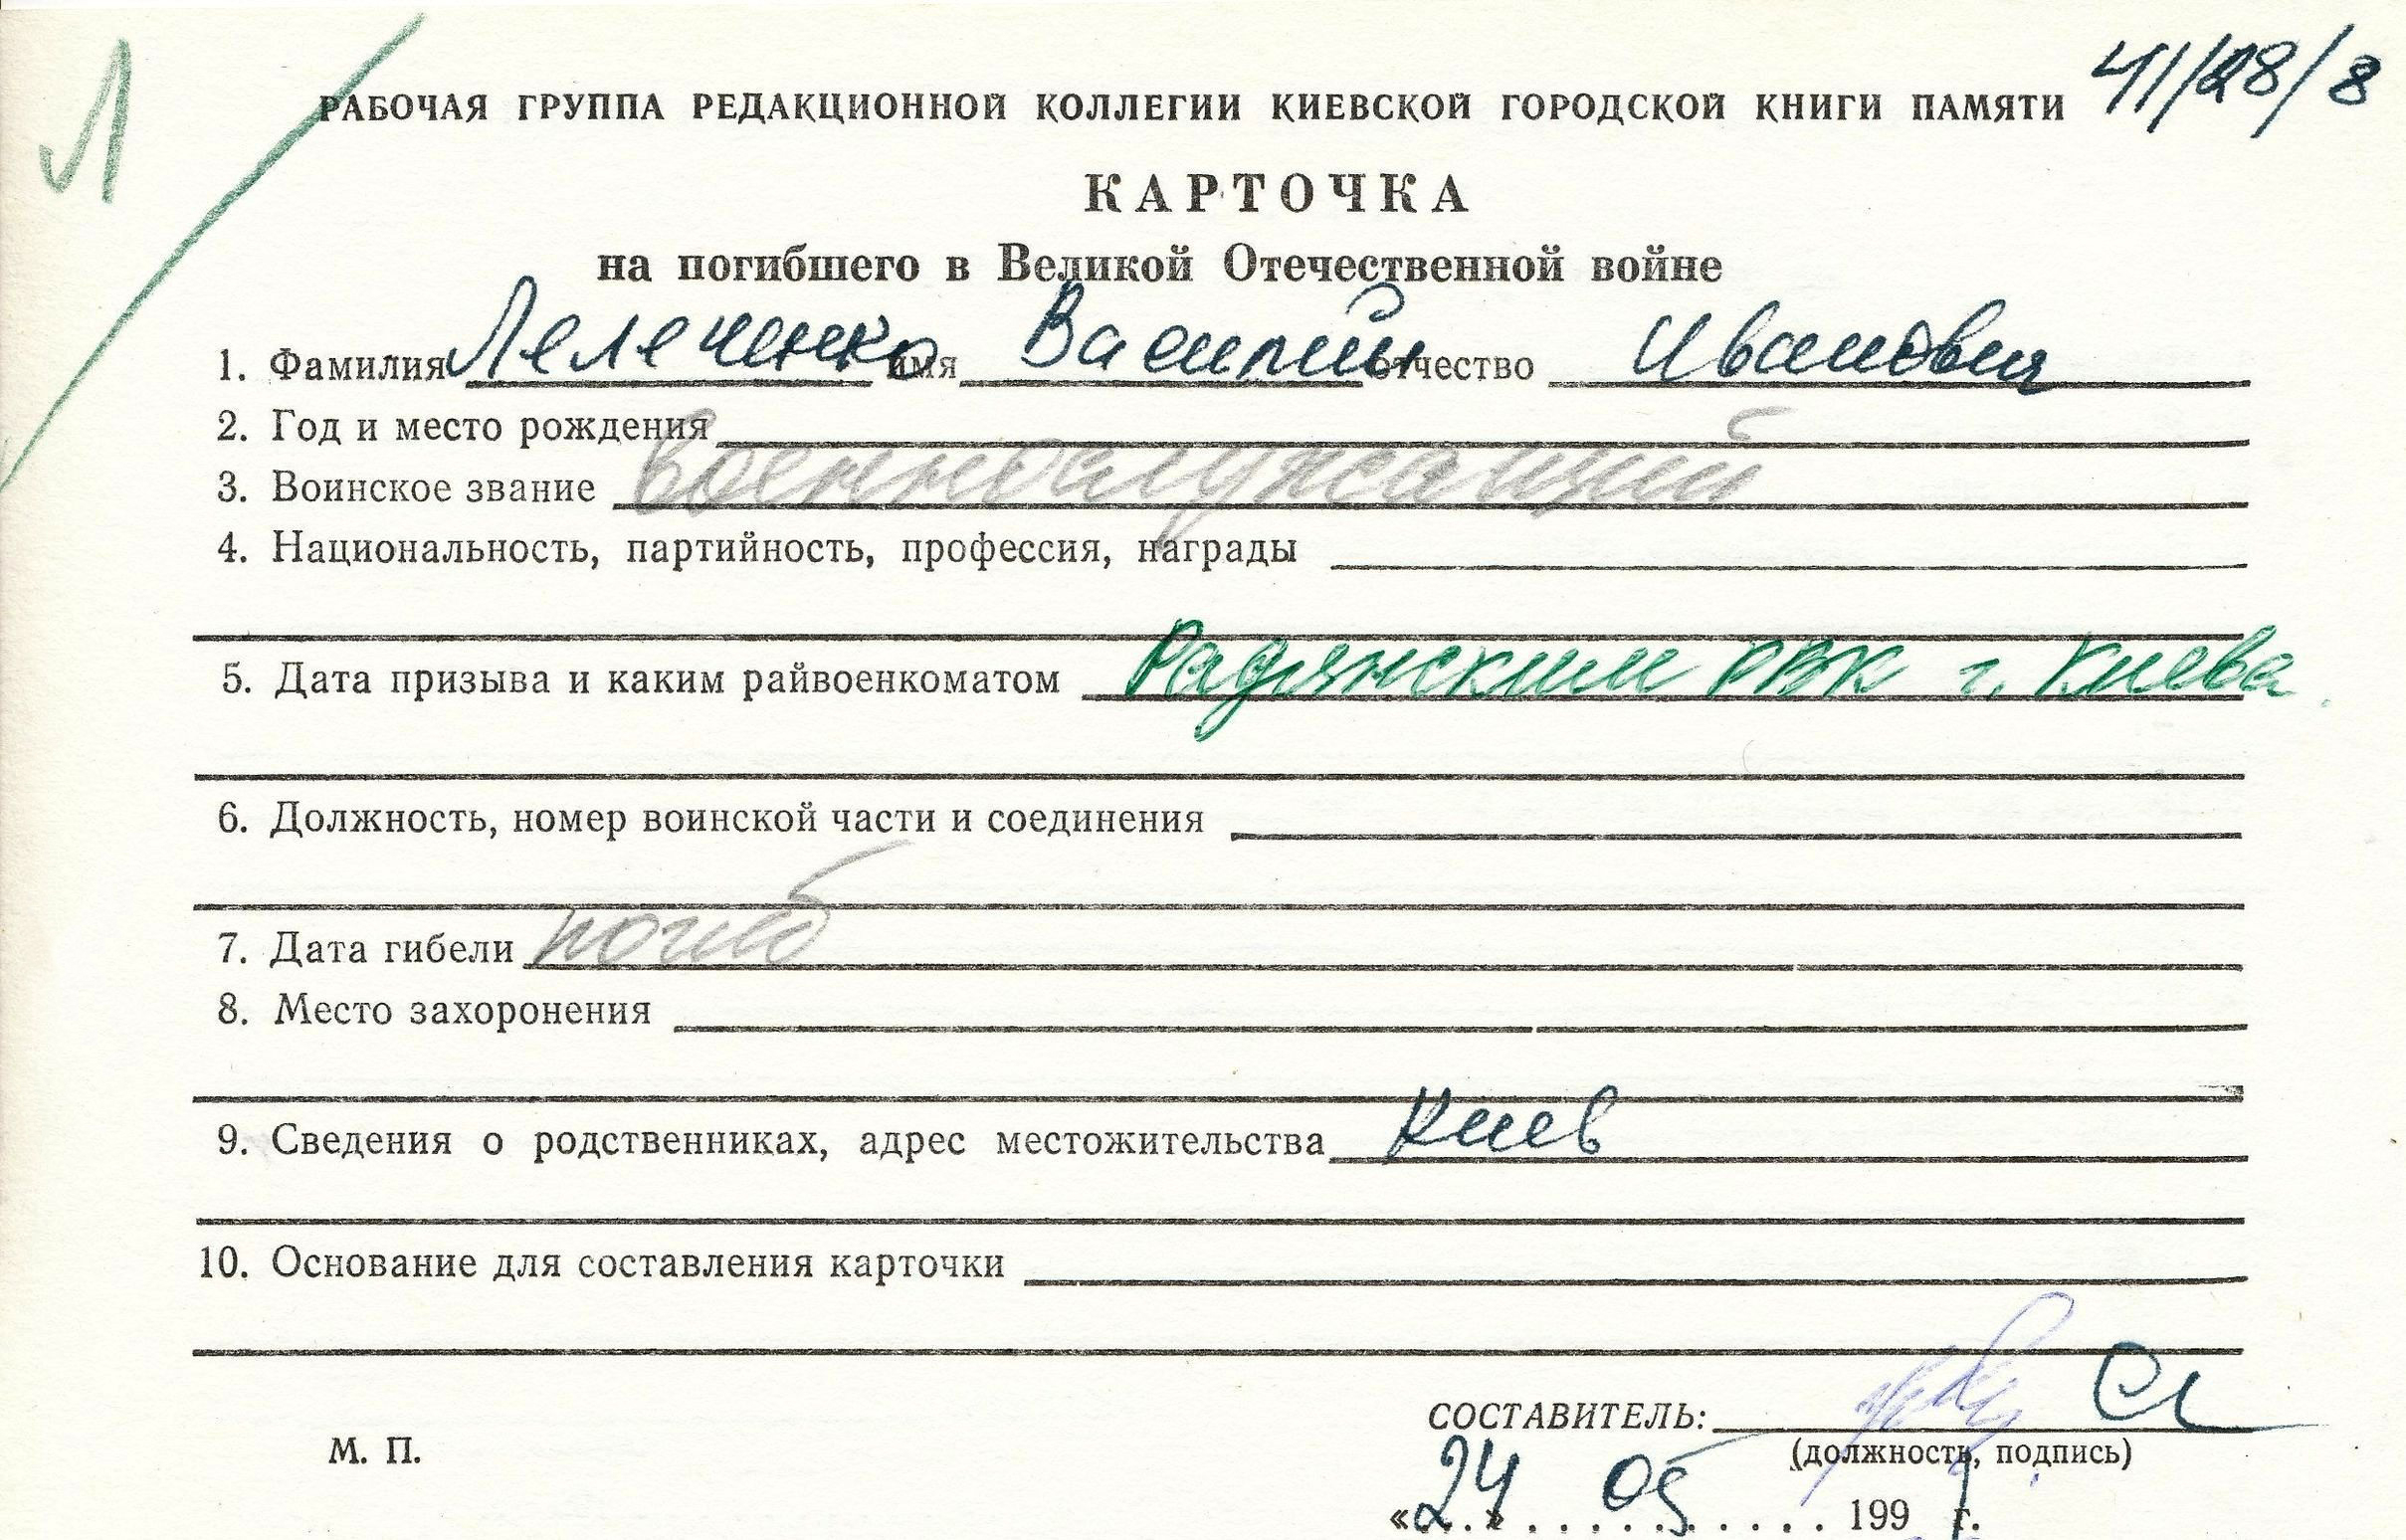 Л
41/28/8
РАБОЧАЯ ГРУППА РЕДАКЦИОННОЙ КОЛЛЕГИИ КИЕВСКОЙ ГОРОДСКОЙ КНИГИ ПАМЯТИ
КАРТОЧКА
на погибшего в Великой Отечественной войне
1. Фамилия Лелеченко имя Василий отчество Иванович
2. Год и место рождения
3. Воинское звание военнослужащий
4. Национальность, партийность, профессия, награды
5. Дата призыва и каким райвоенкоматом Радянским РВК г. Киева.
6. Должность, номер воинской части и соединения
7. Дата гибели погиб
8. Место захоронения
9. Сведения о родственниках, адрес местожительства Киев
10. Основание для составления карточки
СОСТАВИТЕЛЬ:
М. П.
(должность, подпись)
«24» 05 199 г.